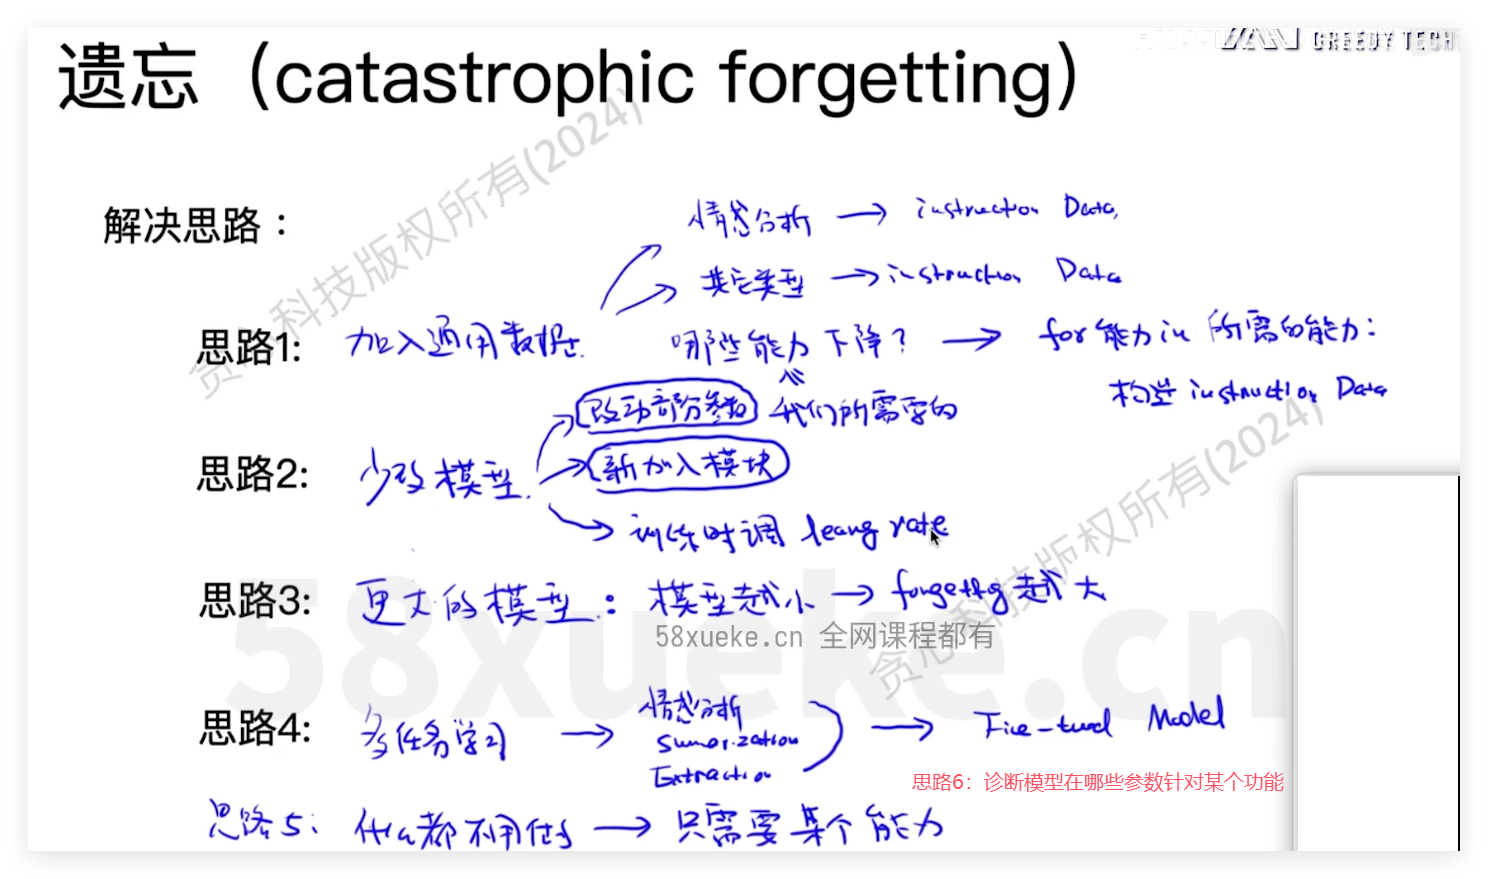 GREEDY TECH
遗忘（catastrophic forgetting）
贪心科技版权所有(2024)
解决思路：
情感分析 → instruction Data
其它类型 → instruction Data
思路1: 加入通用数据
哪些能力下降？ → for 能力 in 所需的能力：
我们所需要的
构造 instruction Data
思路2: 少改模型
改动部分参数
新加入模块
训练时调 learng rate
思路3: 更大的模型：模型越小 → forgettng 越大
58xueke.cn
58xueke.cn 全网课程都有
贪心科技版权所有(2024)
思路4: 多任务学习 → 情感分析
Sumarization
Extraction
→ Fine-tued Model
思路6：诊断模型在哪些参数针对某个功能
思路5: 什么都不用做 → 只需要某个能力